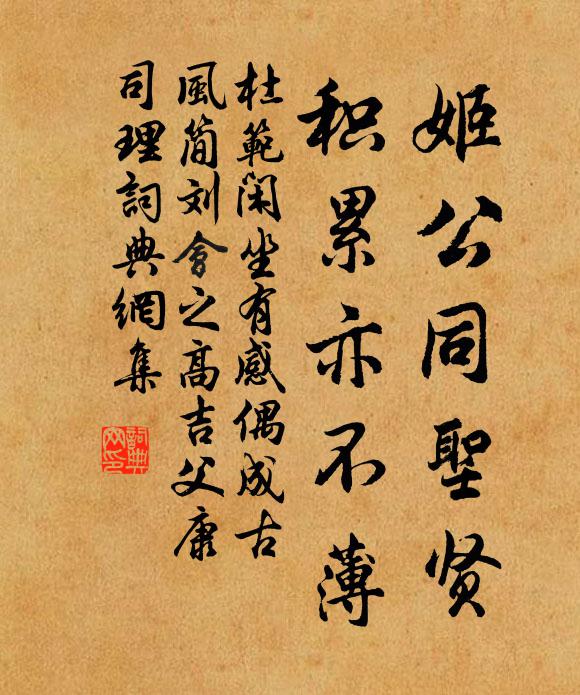 姬公同聖贤
积累亦不薄
杜範闲坐有感偶成古
風简刘會之高吉父康
司理詞典網集
詞典网印